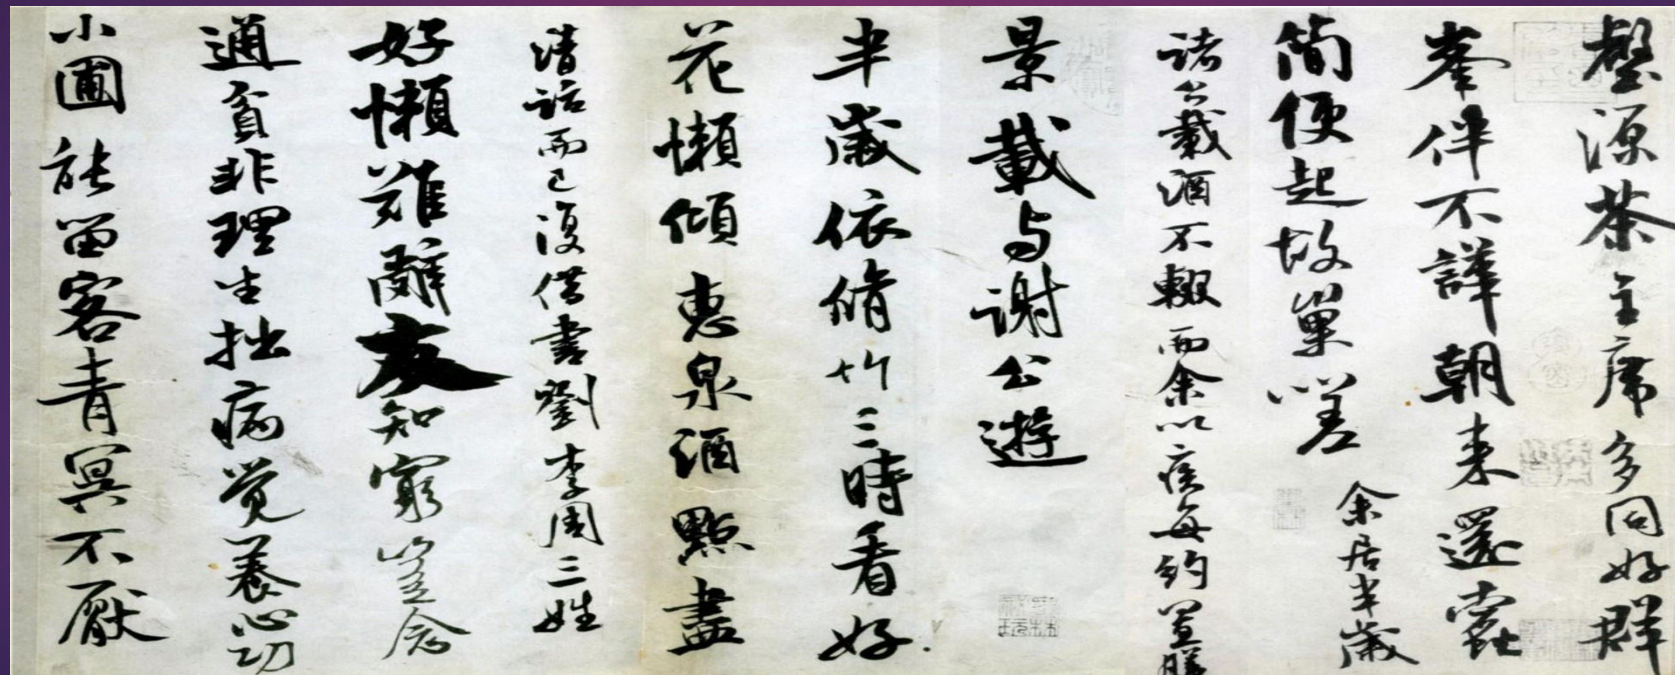 壑源茶主席多同好群
峯伴不譁朝来還蠹
簡便起故巢嗟
余居半歲
諸公載酒不輟而余以疾每約置膳
景載与謝公遊
半歲依脩竹三時看好
花懶傾惠泉酒點盡
清話而已復借書劉李周三姓
好懶難辭友知窮豈念
通貧非理生拙病覺養心功
小圃能留客青冥不厭